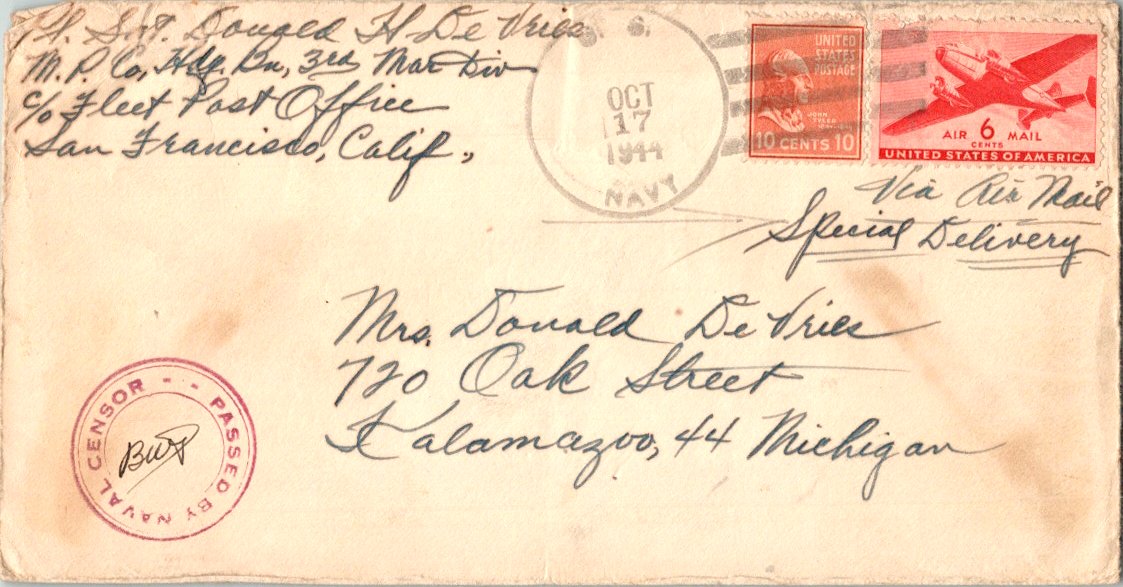 Pl. Sgt. Donald H De Vries
M. P. Co, Hdq. Bn, 3rd Mar Div
c/o Fleet Post Office
San Francisco, Calif.,
U. S.
OCT
17
1944
NAVY
UNITED
STATES
POSTAGE
JOHN
TYLER
10 CENTS 10
AIR 6 MAIL
CENTS
UNITED STATES OF AMERICA
Via Air Mail
Special Delivery
Mrs. Donald De Vries
720 Oak Street
Kalamazoo, 44 Michigan
PASSED BY NAVAL CENSOR